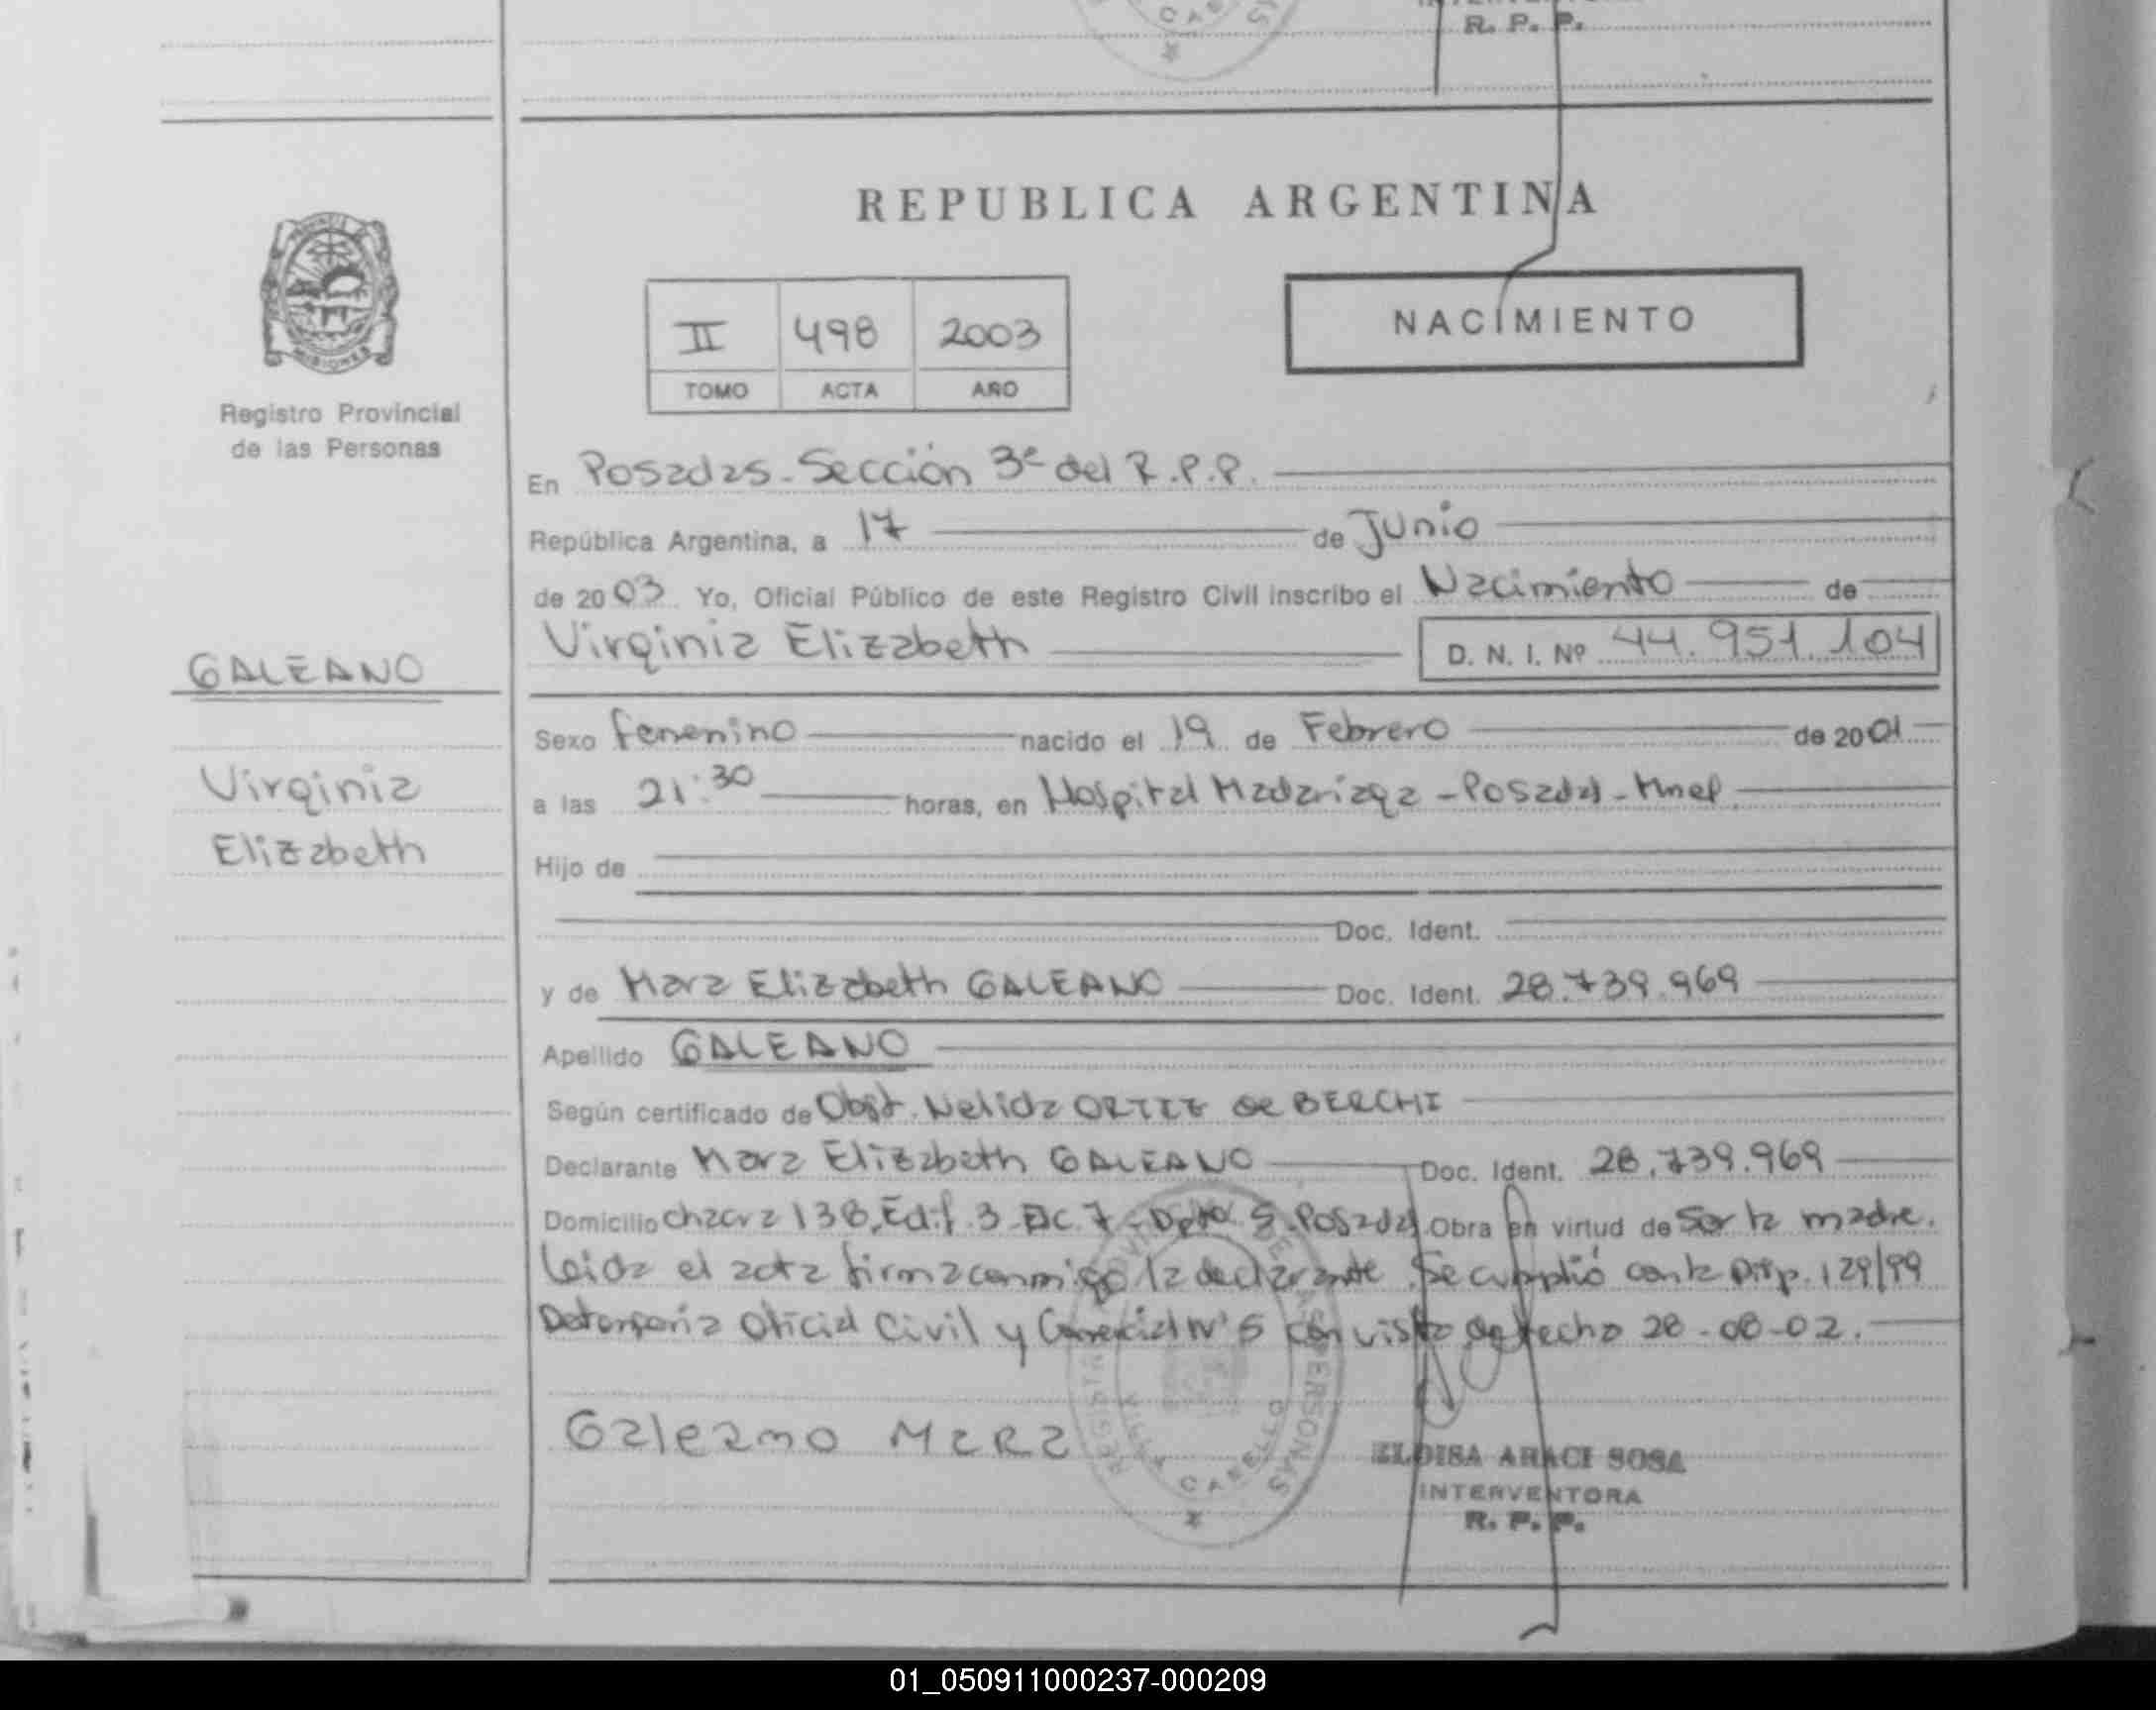 R. P. P.
REPUBLICA ARGENTINA
II 498 2003
TOMO ACTA AÑO
NACIMIENTO
MISIONES
Registro Provincial
de las Personas
En Posadas - Sección 3ª del R.P.P.
República Argentina, a 17 de Junio
de 2003 Yo, Oficial Público de este Registro Civil inscribo el Nacimiento de
Virginia Elizabeth D. N. I. Nº 44.951.104
GALEANO
Virginia
Elizabeth
Sexo femenino nacido el 19 de Febrero de 2001
a las 21:30 horas, en Hospital Madariaga - Posadas - Mnes
Hijo de
Doc. Ident.
y de Mara Elizabeth GALEANO Doc. Ident. 28.739.969
Apellido GALEANO
Según certificado de Obst. Nelida ORTIZ de BERCHI
Declarante Mara Elizabeth GALEANO Doc. Ident. 28.739.969
Domicilio chacra 138, Edif. 3 - Esc. 7 - Dpto 5 - Posadas Obra en virtud de ser la madre.
Leida el acta firma conmigo la declarante. Se cumplió con la Disp. 129/99
Defensoria Oficial Civil y Comercial Nº 5 con vista de fecha 28-08-02.
Galeano Mara
ELOISA ARACI SOSA
INTERVENTORA
R. P. P.
01_050911000237-000209